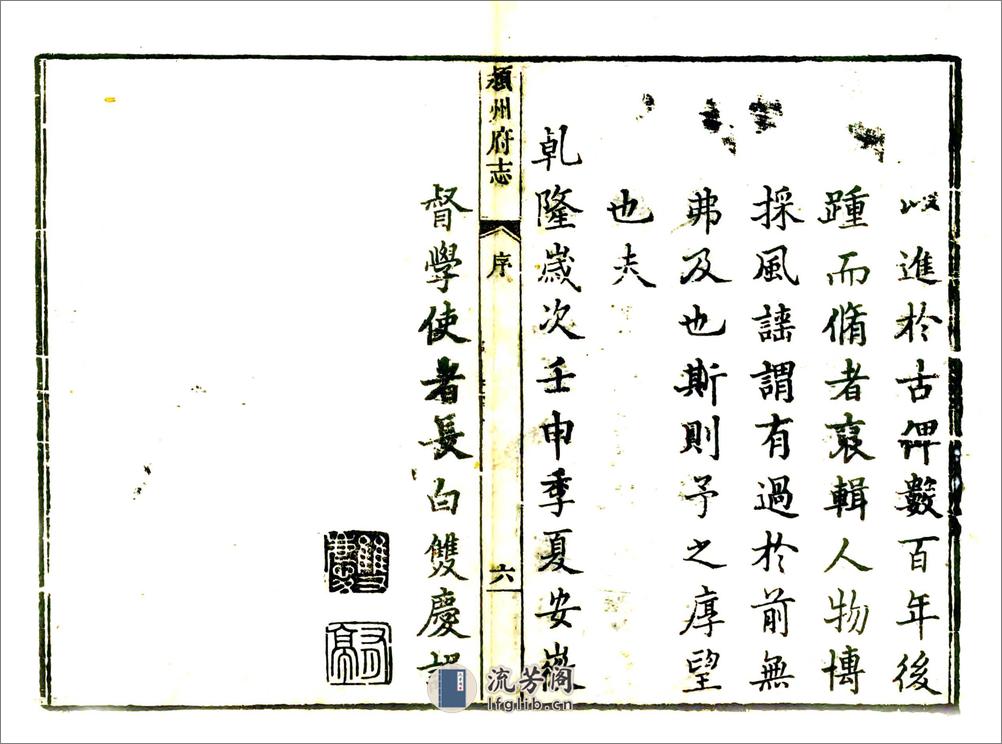 以進於古俾數百年後
踵而脩者裒輯人物博
採風謡謂有過於前無
弗及也斯則予之厚望
也夫
乾隆歲次壬申季夏安徽
潁州府志
序
六
督學使者長白雙慶
雙慶
流芳阁
lfglib.cn